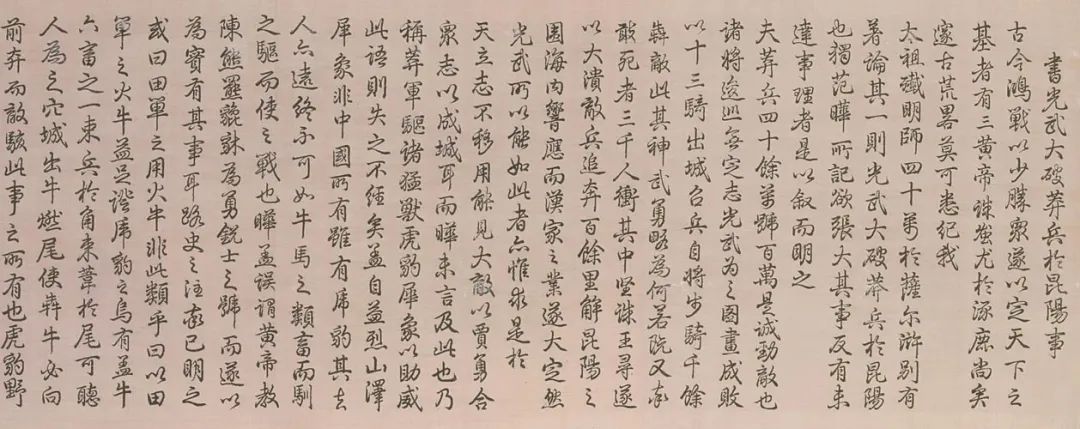 書光武大破莽兵於昆陽事
古今鴻戰以少勝衆遂以定天下之
基者有三黄帝誅蚩尤於涿鹿尚矣
邃古荒畧莫可悉紀我
太祖殲明師四十萬於薩尔滸别有
著論其一則光武大破莽兵於昆陽
也獨范曄所記欲張大其事反有未
達事理者是以叙而明之
夫莽兵四十餘萬號百萬是誠勁敵也
諸將逡巡無定志光武為之圖畫成敗
以十三騎出城召兵自將步騎千餘
犇敵此其神武勇略為何若既又率
敢死者三千人衝其中堅誅王尋遂
以大潰敵兵追奔百餘里解昆陽之
圍海内響應而漢家之業遂大定然
光武所以能如此者亦惟求是於
天立志不移用能見大敵以賈勇合
衆志以成城耳而曄未言及此也乃
稱莽軍驅諸猛獸虎豹犀象以助威
此語則失之不經矣盖自益烈山澤
犀象非中國所有雖有虎豹其去
人亦遠終不可如牛馬之類畜而馴
之驅而使之戰也曄盖误谓黄帝教
陳熊羆貔貅為勇鋭士之號而遂以
為實有其事耳路史之注亦已明之
或曰田單之用火牛非此類乎曰以田
單之火牛益足證虎豹之烏有盖牛
六畜之一束兵於角束葦於尾可聽
人為之穴城出牛燃尾使犇牛必向
前奔而敵駭此事之所有也虎豹野